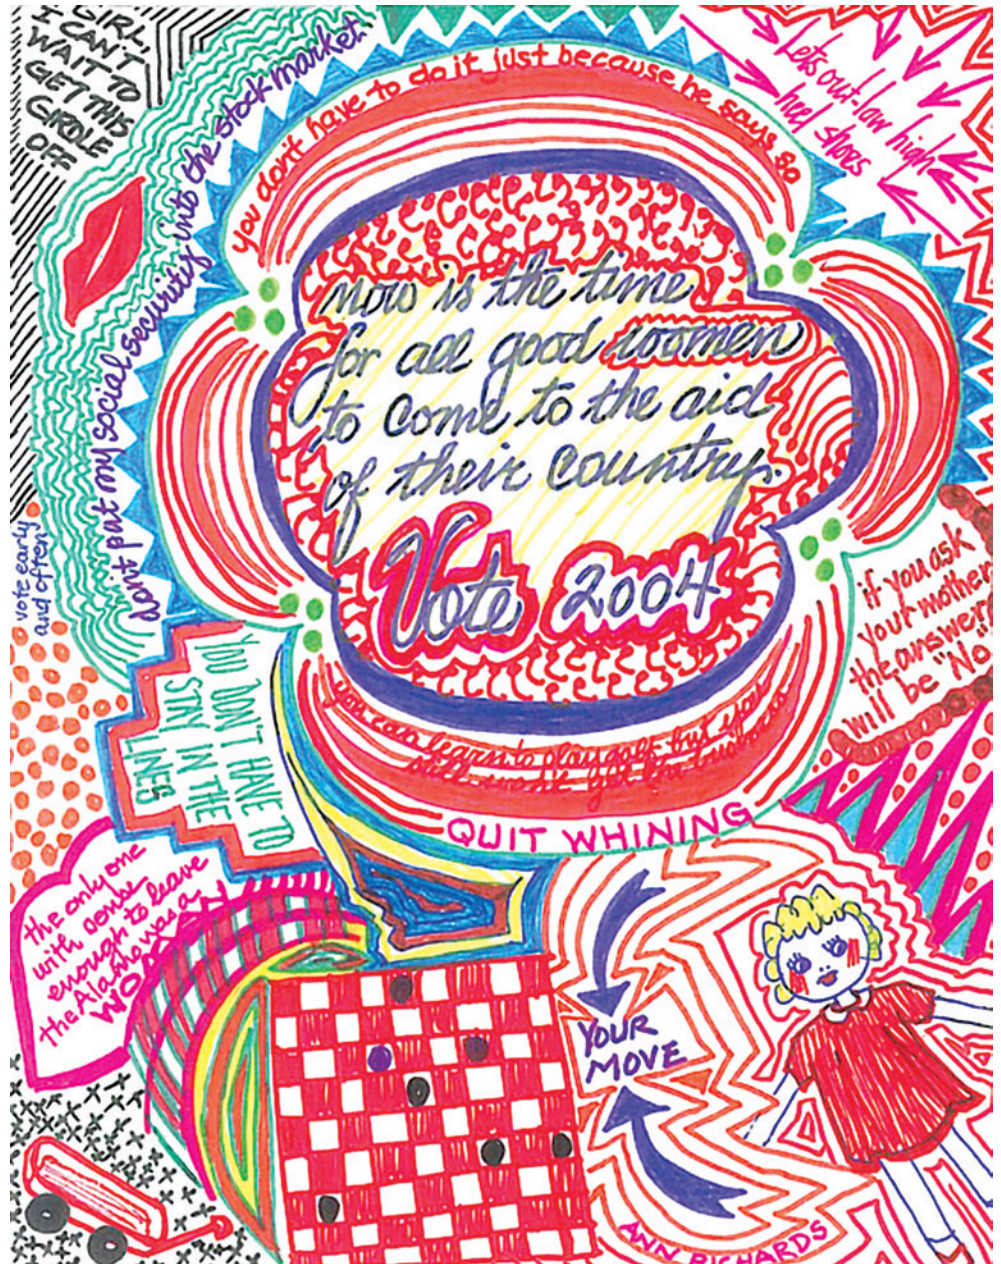 GIRL,
I CAN'T
WAIT TO
GET THIS
GIRDLE
OFF
don't put my social security into the stock market.
you don't have to do it just because he says so
Lets out-law high
heel shoes
now is the time
for all good women
to come to the aid
of their country.
Vote 2004
vote early
and often
if you ask
your mother
the answer
will be "No"
YOU DON'T HAVE TO
STAY IN THE
LINES
you can learn to play golf but you
still won't get the business
QUIT WHINING
the only one
with sense
enough to leave
the Alamo was a
WOMAN
YOUR
MOVE
ANN RICHARDS